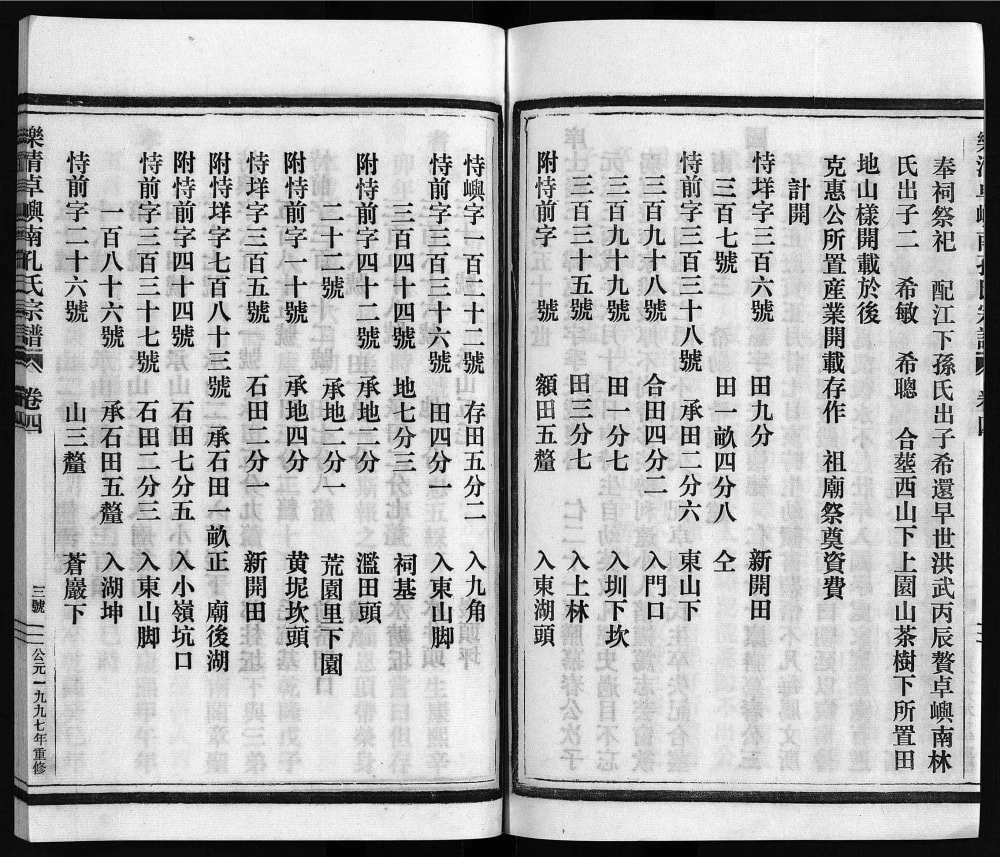 奉祠祭祀　配江下孫氏出子希還早世洪武丙辰贅卓嶼南林
氏出子二　希敏　希聰　合塟西山下上園山茶樹下所置田
地山樣開載於後
克惠公所置産業開載存作　祖廟祭奠資費
計開
恃垟字三百六號　田九分　新開田
三百七號　田一畝四分八　仝
恃前字三百三十八號　承田二分六　東山下
三百九十八號　合田四分二　入門口
三百九十九號　田一分七　入圳下坎
三百三十五號　田三分七　入土林
附恃前字　額田五釐　入東湖頭
恃嶼字一百二十二號　存田五分二　入九角
恃前字三百三十六號　田四分一　入東山脚
三百四十四號　地七分三　祠基
附恃前字四十二號　承地一分一　濫田頭
二十二號　承地二分一　荒園里下園
附恃前字一十號　承地四分　黄坭坎頭
恃垟字三百五號　石田二分一　新開田
附恃垟字七百八十三號　承石田一畝正　廟後湖
附恃前字四十四號　石田七分五　入小嶺坑口
恃前字三百三十七號　石田二分三　入東山脚
一百八十六號　承石田五釐　入湖坤
恃前字二十六號　山三釐　蒼巖下
樂清卓嶼南孔氏宗譜　卷四　三號　公元一九九七年重修